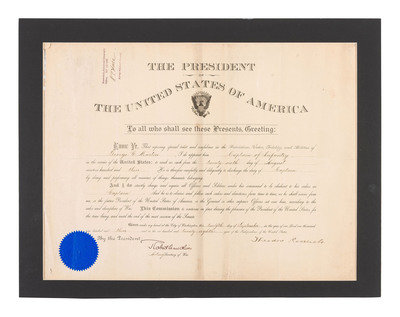 THE PRESIDENT
OF
THE UNITED STATES OF AMERICA
To all who shall see these Presents, Greeting:
Know Ye: That reposing special trust and confidence in the Patriotism, Valor, Fidelity, and Abilities of
George I do appoint him Captain of Infantry
in the service of the United States: to rank as such from the day of August
nineteen hundred and three He is therefore carefully and diligently to discharge the duty of Captain
by doing and performing all manner of things thereunto belonging.
And I do strictly charge and require all Officers and Soldiers under his command to be obedient to his orders as
Captain And he is to observe and follow such orders and directions, from time to time, as he shall receive from
me, or the future President of the United States of America, or the General or other superior Officers set over him, according to the
rules and discipline of War. This Commission to continue in force during the pleasure of the President of the United States for
the time being and until the end of the next session of the Senate.
Given under my hand at the City of Washington this day of September in the year of our Lord one thousand
nine hundred and three and in the one hundred and twenty-eighth year of the Independence of the United States.
By the President:
Theodore Roosevelt
Secretary of War.